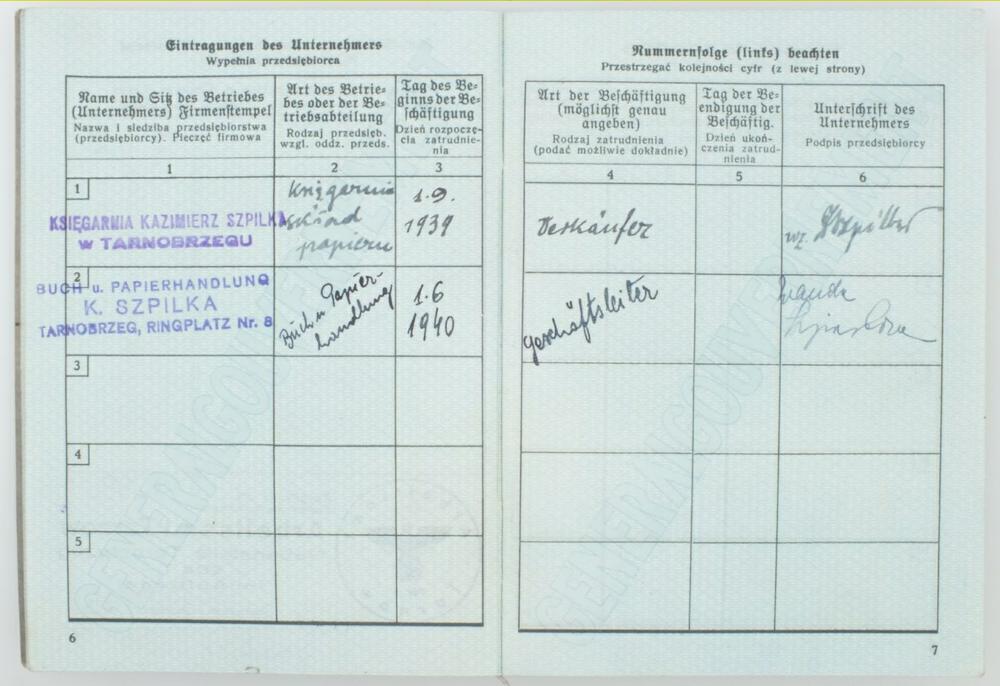 Eintragungen des Unternehmers
Wypełnia przedsiębiorca
Name und Sitz des Betriebes
(Unternehmers) Firmenstempel
Nazwa i siedziba przedsiębiorstwa
(przedsiębiorcy). Pieczęć firmowa
Art des Betrie-
bes oder der Be-
triebsabteilung
Rodzaj przedsięb.
wzgl. oddz. przeds.
Tag des Be-
ginns der Be-
schäftigung
Dzień rozpoczę-
cia zatrudnie-
nia
1
2
3
1
KSIĘGARNIA KAZIMIERZ SZPILKA
w TARNOBRZEGU
Księgarnia
skład
papieru
1.9.
1939
2
BUCH u. PAPIERHANDLUNG
K. SZPILKA
TARNOBRZEG, RINGPLATZ Nr. 8
Buch u Papier-
handlung
1.6
1940
3
4
5
6
Nummernfolge (links) beachten
Przestrzegać kolejności cyfr (z lewej strony)
Art der Beschäftigung
(möglichst genau
angeben)
Rodzaj zatrudnienia
(podać możliwie dokładnie)
Tag der Be-
endigung der
Beschäftig.
Dzień ukoń-
czenia zatrud-
nienia
Unterschrift des
Unternehmers
Podpis przedsiębiorcy
4
5
6
Verkäufer
wz.
Geschäftsleiter
Wanda
7
GENERALGOUVERNEMENT
GENERALGOUVERNEMENT